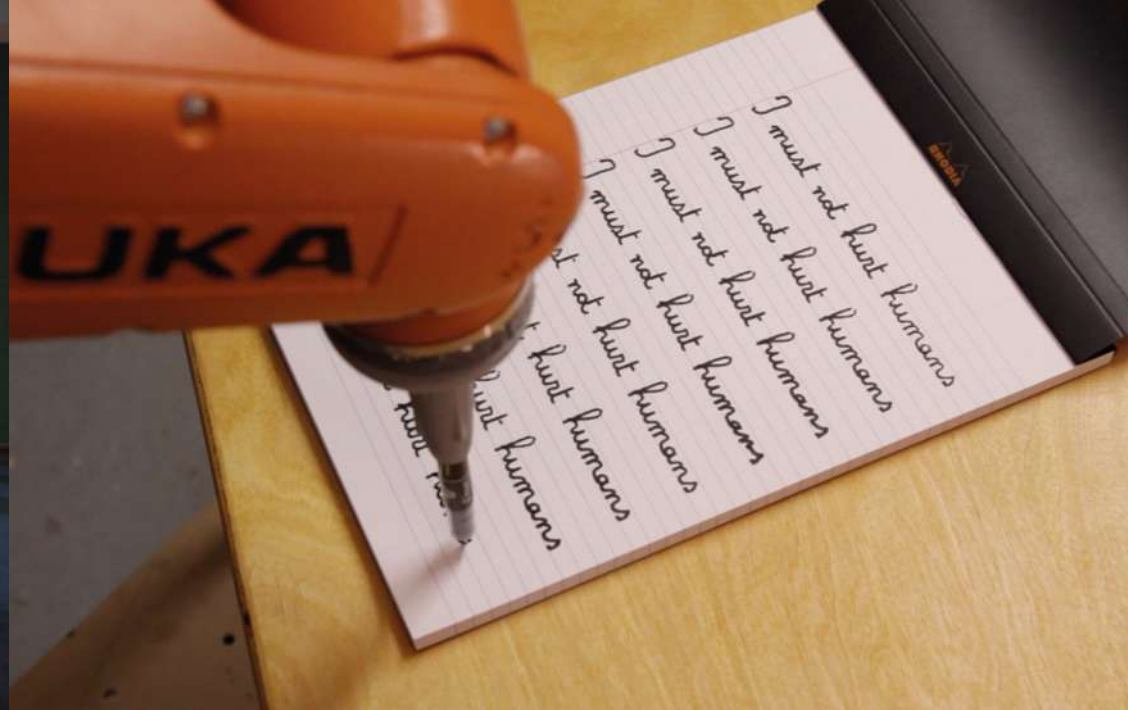 UKA
RHODIA
I must not hurt humans
I must not hurt humans
I must not hurt humans
I must not hurt humans
not hurt humans
hurt humans
hurt humans
hurt